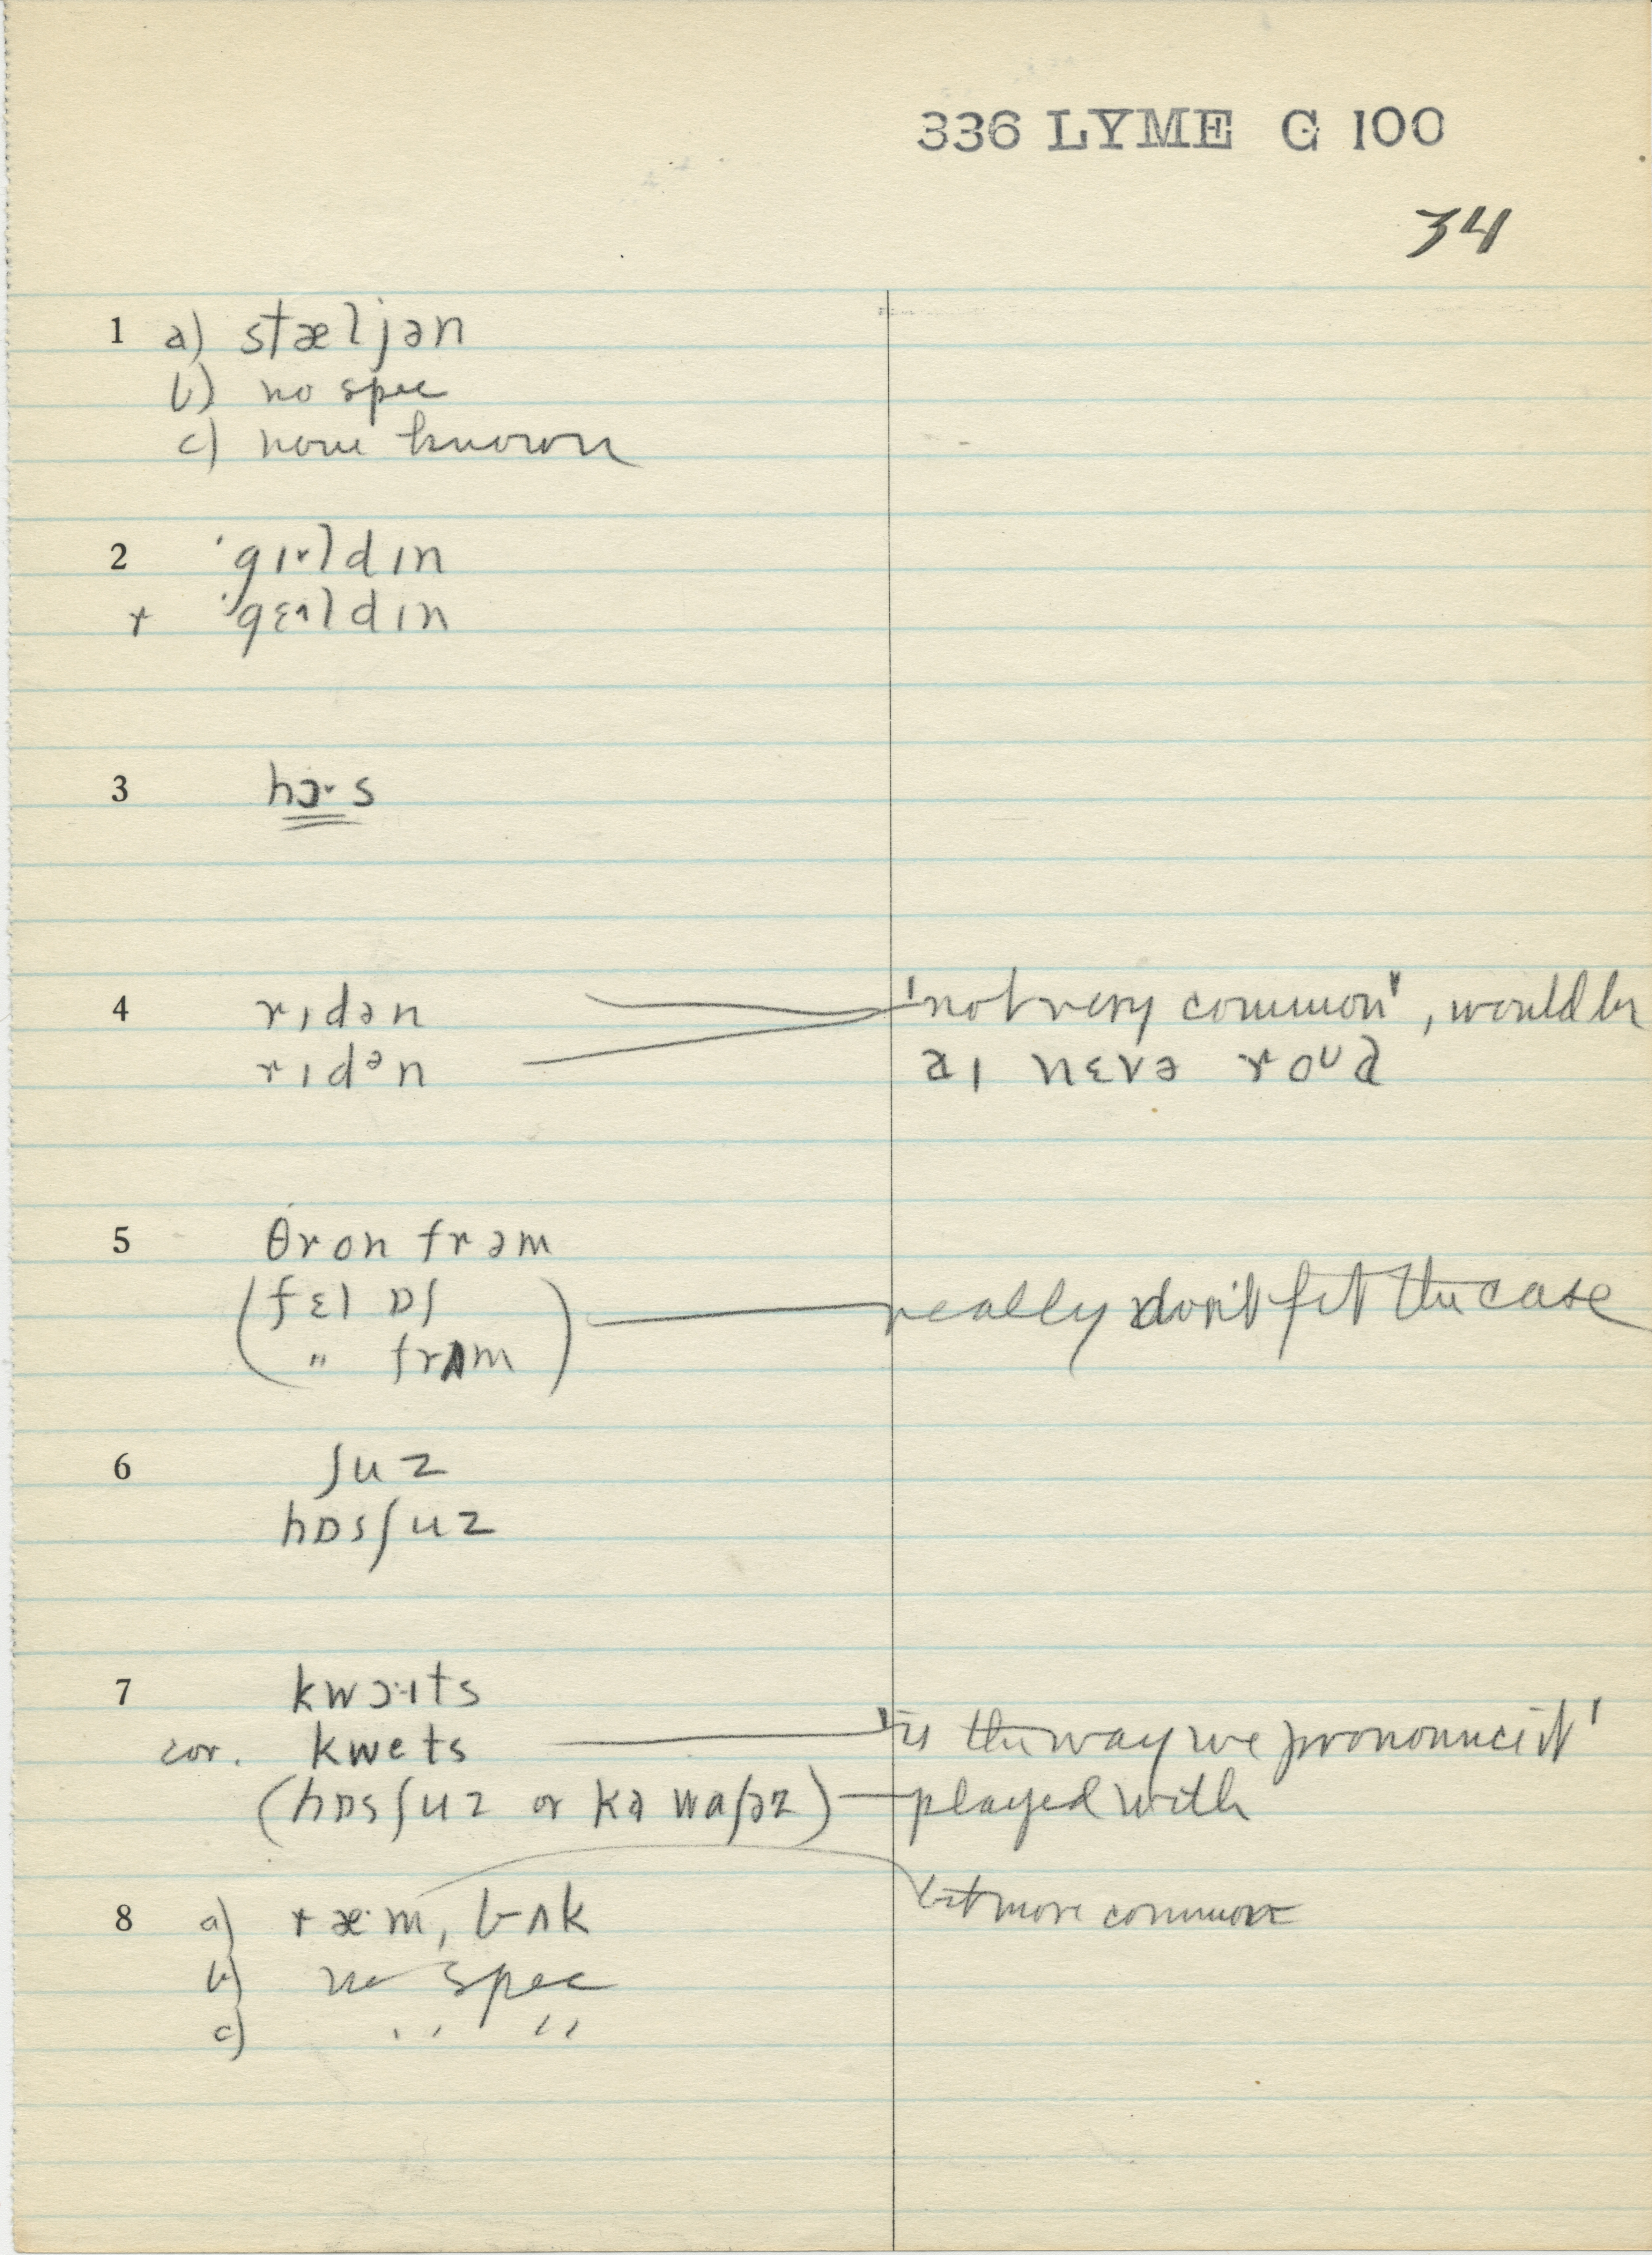 336 LYME G 100
34
1 a) stæljən
b) no spec
c) none known
2 'gɪ˞ldɪn
+ 'gɛɪldɪn
3 hɔ˞s
4 rɪdən 'not very common', would be
rɪdᵊn aɪ nɛvə roᴜd
5 θron frəm
(fɛl ɒf really don't fit the case
" frʌm)
6 ʃuz
hɒsʃuz
7 kwɔ·ɪts
cor. kwets 'is the way we pronounce it'
(hɒsʃuz or kə waʃəz) played with
8 a) ræ·m, bʌk bit more common
b) no spec
c) " "